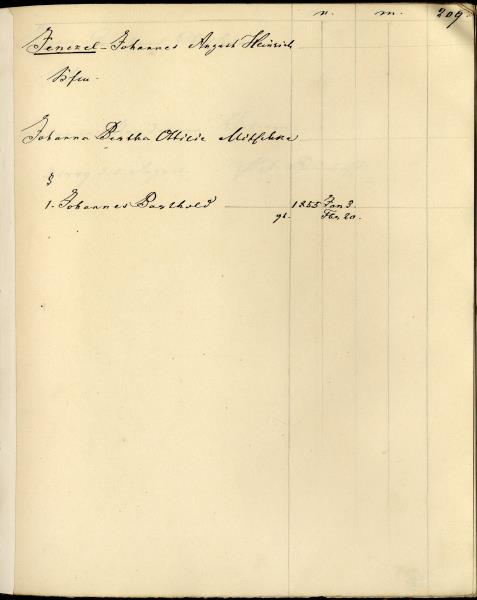 n. m. 209.
Jenezel - Johannes August Heinrich
Johanna Bertha Ottilie Mitschke
§
1. Johannes Barthold 1855 Jan 3.
gt. Fbr 20.